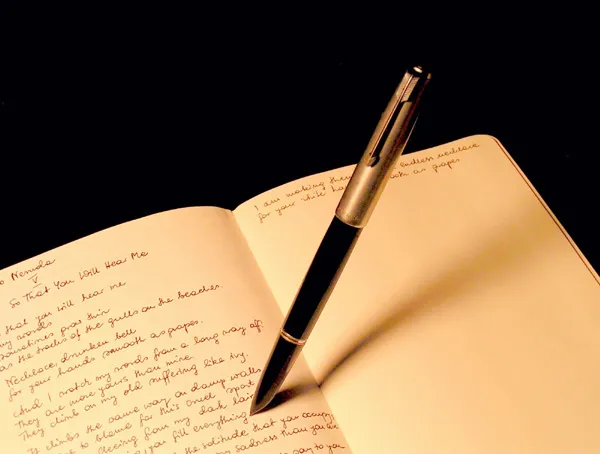 o Neruda
V
So That You Will Hear Me
that you will hear me
my words
sometimes grow thin
as the tracks of the gulls on the beaches.
Necklace, drunken bell
for your hands smooth as grapes.
And I watch my words from a long way off.
They are more yours than mine.
They climb on my old suffering like ivy.
It climbs the same way on damp walls
to blame for this cruel sport.
fleeing from my dark lair
you fill everything
the solitude that you occupy
my sadness than you are
to say to you
I am making them endless necklace
for your white ha oth as grapes